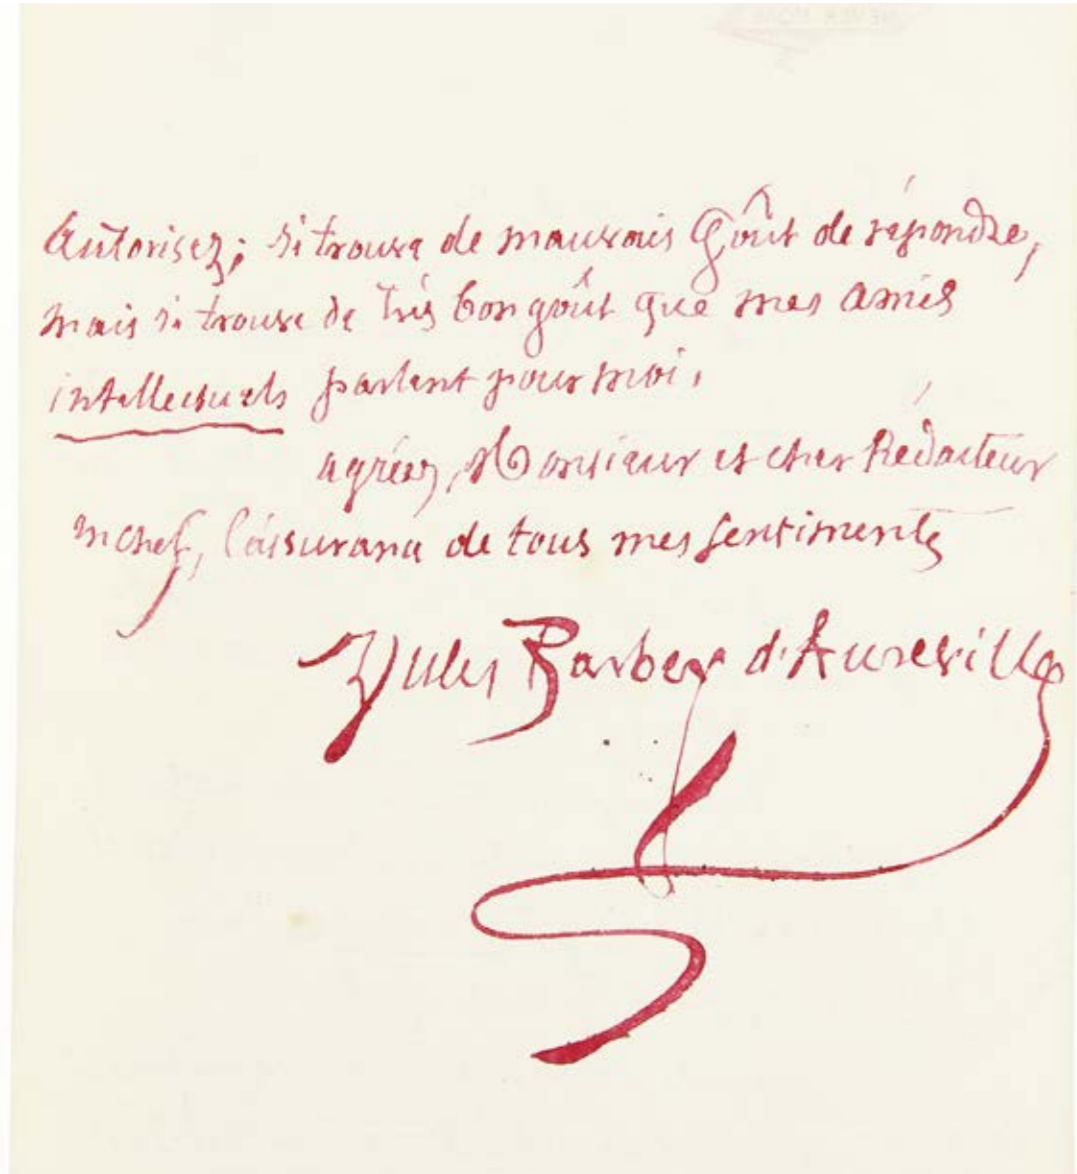 autorisez; si trouve de mauvais goût de répondre,
mais si trouve de très bon goût que mes amis
intellectuels parlent pour moi.
agréez, Monsieur et cher Rédacteur
en chef, l'assurance de tous mes sentiments
Jules Barbey d'Aurevilly